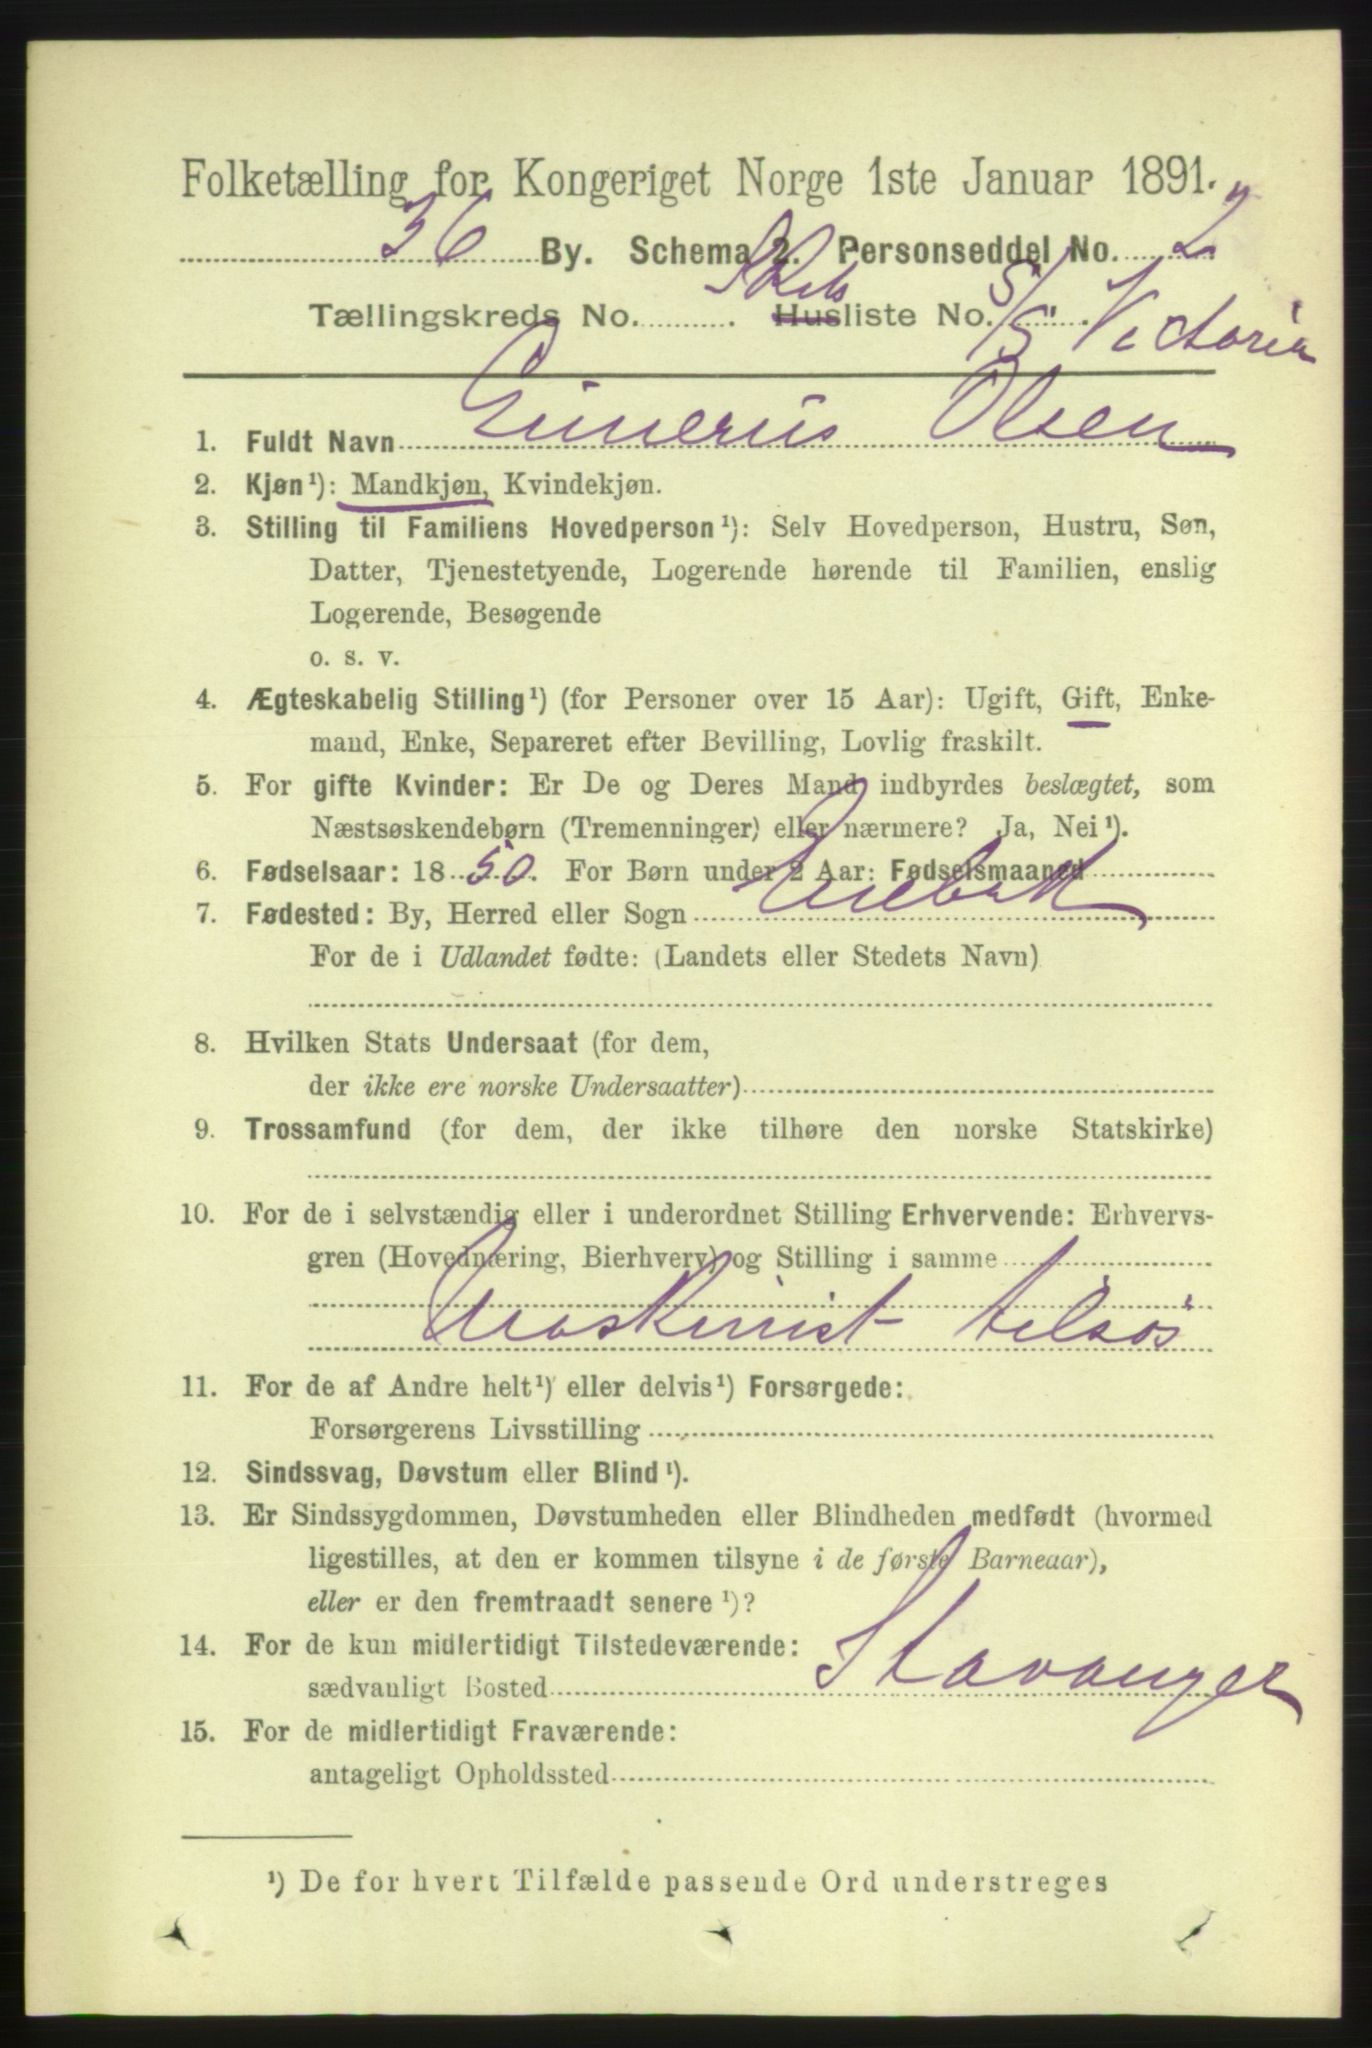 Folketælling for Kongeriget Norge 1ste Januar 1891.
36 By. Schema 2. Personseddel No. 2
Tællingskreds No. Skibs Husliste No. S/S Victoria
1. Fuldt Navn Gunerius Olsen
2. Kjøn¹): Mandkjøn, Kvindekjøn.
3. Stilling til Familiens Hovedperson¹): Selv Hovedperson, Hustru, Søn,
Datter, Tjenestetyende, Logerende hørende til Familien, enslig
Logerende, Besøgende
o. s. v.
4. Ægteskabelig Stilling¹) (for Personer over 15 Aar): Ugift, Gift, Enke-
mand, Enke, Separeret efter Bevilling, Lovlig fraskilt.
5. For gifte Kvinder: Er De og Deres Mand indbyrdes beslægtet, som
Næstsøskendebørn (Tremenninger) eller nærmere? Ja, Nei¹).
6. Fødselsaar: 1850. For Børn under 2 Aar: Fødselsmaaned
7. Fødested: By, Herred eller Sogn
For de i Udlandet fødte: (Landets eller Stedets Navn)
8. Hvilken Stats Undersaat (for dem,
der ikke ere norske Undersaatter)
9. Trossamfund (for dem, der ikke tilhøre den norske Statskirke)
10. For de i selvstændig eller i underordnet Stilling Erhvervende: Erhvervs-
gren (Hovednæring, Bierhverv) og Stilling i samme
Maskinist tilsøs
11. For de af Andre helt¹) eller delvis¹) Forsørgede:
Forsørgerens Livsstilling
12. Sindssvag, Døvstum eller Blind¹).
13. Er Sindssygdommen, Døvstumheden eller Blindheden medfødt (hvormed
ligestilles, at den er kommen tilsyne i de første Barneaar),
eller er den fremtraadt senere¹)?
14. For de kun midlertidigt Tilstedeværende:
sædvanligt Bosted Stavanger
15. For de midlertidigt Fraværende:
antageligt Opholdssted
¹) De for hvert Tilfælde passende Ord understreges